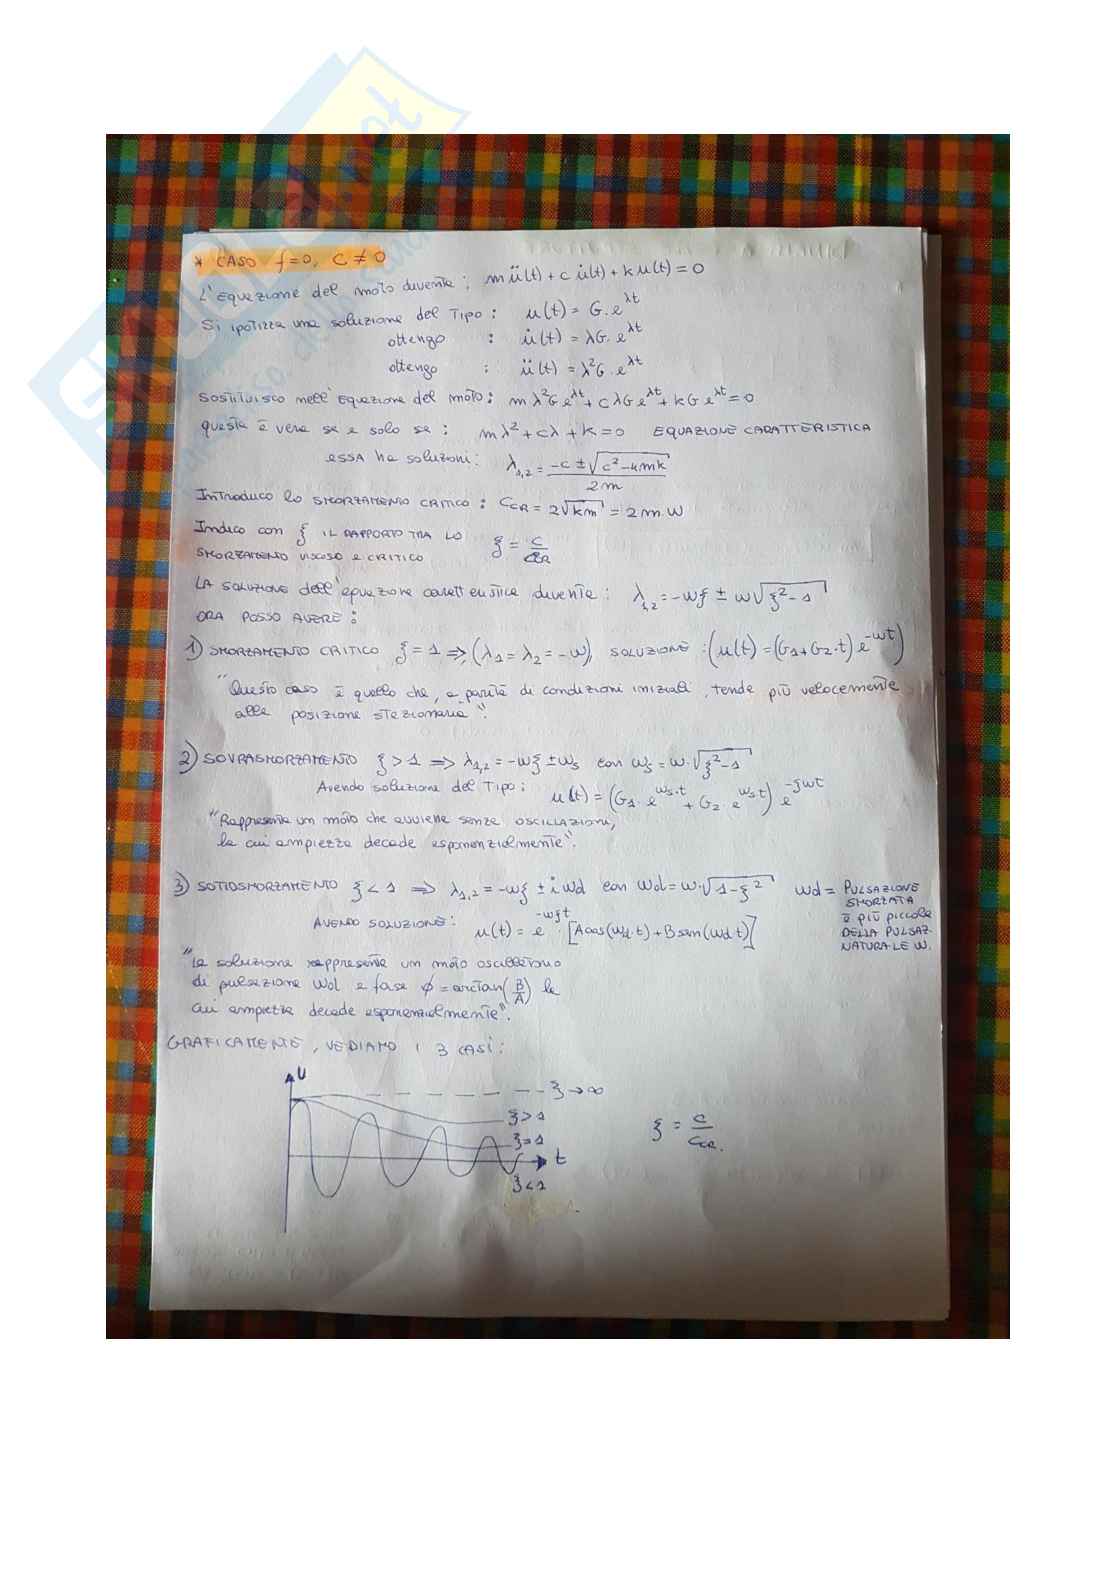 * CASO f=0, C≠0
L'Equazione del moto diventa: mü(t) + c u̇(t) + k u(t) = 0
Si ipotizza una soluzione del Tipo: u(t) = G·e^λt
ottengo : u̇(t) = λG·e^λt
ottengo : ü(t) = λ²G·e^λt
Sostituisco nell'Equazione del moto: mλ²Ge^λt + cλGe^λt + kGe^λt = 0
questa è vera se e solo se: mλ² + cλ + k = 0 EQUAZIONE CARATTERISTICA
essa ha soluzioni: λ1,2 = (-c ± √(c²-4mk)) / 2m
Introduco lo SMORZAMENTO CRITICO: CCR = 2√km = 2m·W
Indico con ξ IL RAPPORTO TRA LO
SMORZAMENTO VISCOSO E CRITICO ξ = C/CCR
LA SOLUZIONE dell'equazione caratteristica diventa: λ1,2 = -wξ ± w√(ξ²-1)
ORA POSSO AVERE:
1) SMORZAMENTO CRITICO ξ=1 ⇒ (λ1 = λ2 = -w), SOLUZIONE: (u(t) = (G1+G2·t) e^-wt)
"Questo caso è quello che, a parità di condizioni iniziali, tende più velocemente
alla posizione stazionaria".
2) SOVRASMORZAMENTO ξ>1 ⇒ λ1,2 = -wξ ± ws con ws = w·√(ξ²-1)
Avendo soluzione del Tipo: u(t) = (G1·e^ws·t + G2·e^ws t) e^-ξwt
"Rappresenta un moto che avviene senza oscillazioni,
la cui ampiezza decade esponenzialmente".
3) SOTTOSMORZAMENTO ξ<1 ⇒ λ1,2 = -wξ ± i wd con wd = w·√(1-ξ²) wd = PULSAZIONE
SMORZATA
è più piccola
DELLA PULSAZ.
NATURALE W.
AVENDO SOLUZIONE: u(t) = e^-wξt · [A cos(wd·t) + B sen(wd t)]
"La soluzione rappresenta un moto oscillatorio
di pulsazione wd e fase ϕ = arctan(B/A) la
cui ampiezza decade esponenzialmente".
GRAFICAMENTE, VEDIAMO I 3 CASI:
U
ξ→∞
ξ>1
ξ=1
t
ξ<1
ξ = C/CCR.